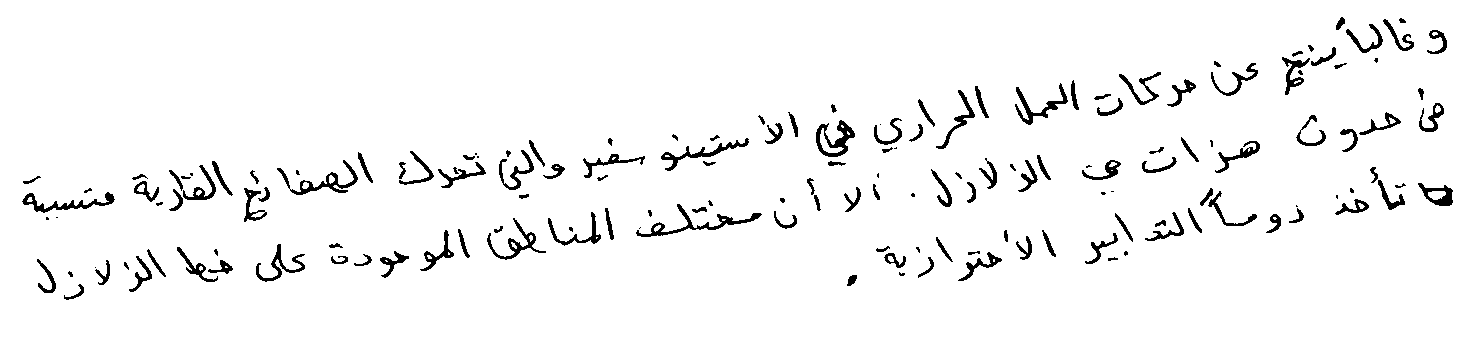 وغالباً ينتج عن حركات الحمل الحراري في الأستينوسفير والتي تحرك الصفائح القارية متسببة
في حدوث هزات هي الزلازل. ألا أن مختلف المناطق الموجودة على خط الزلازل
تأخذ دوماً التدابير الأحترازية .